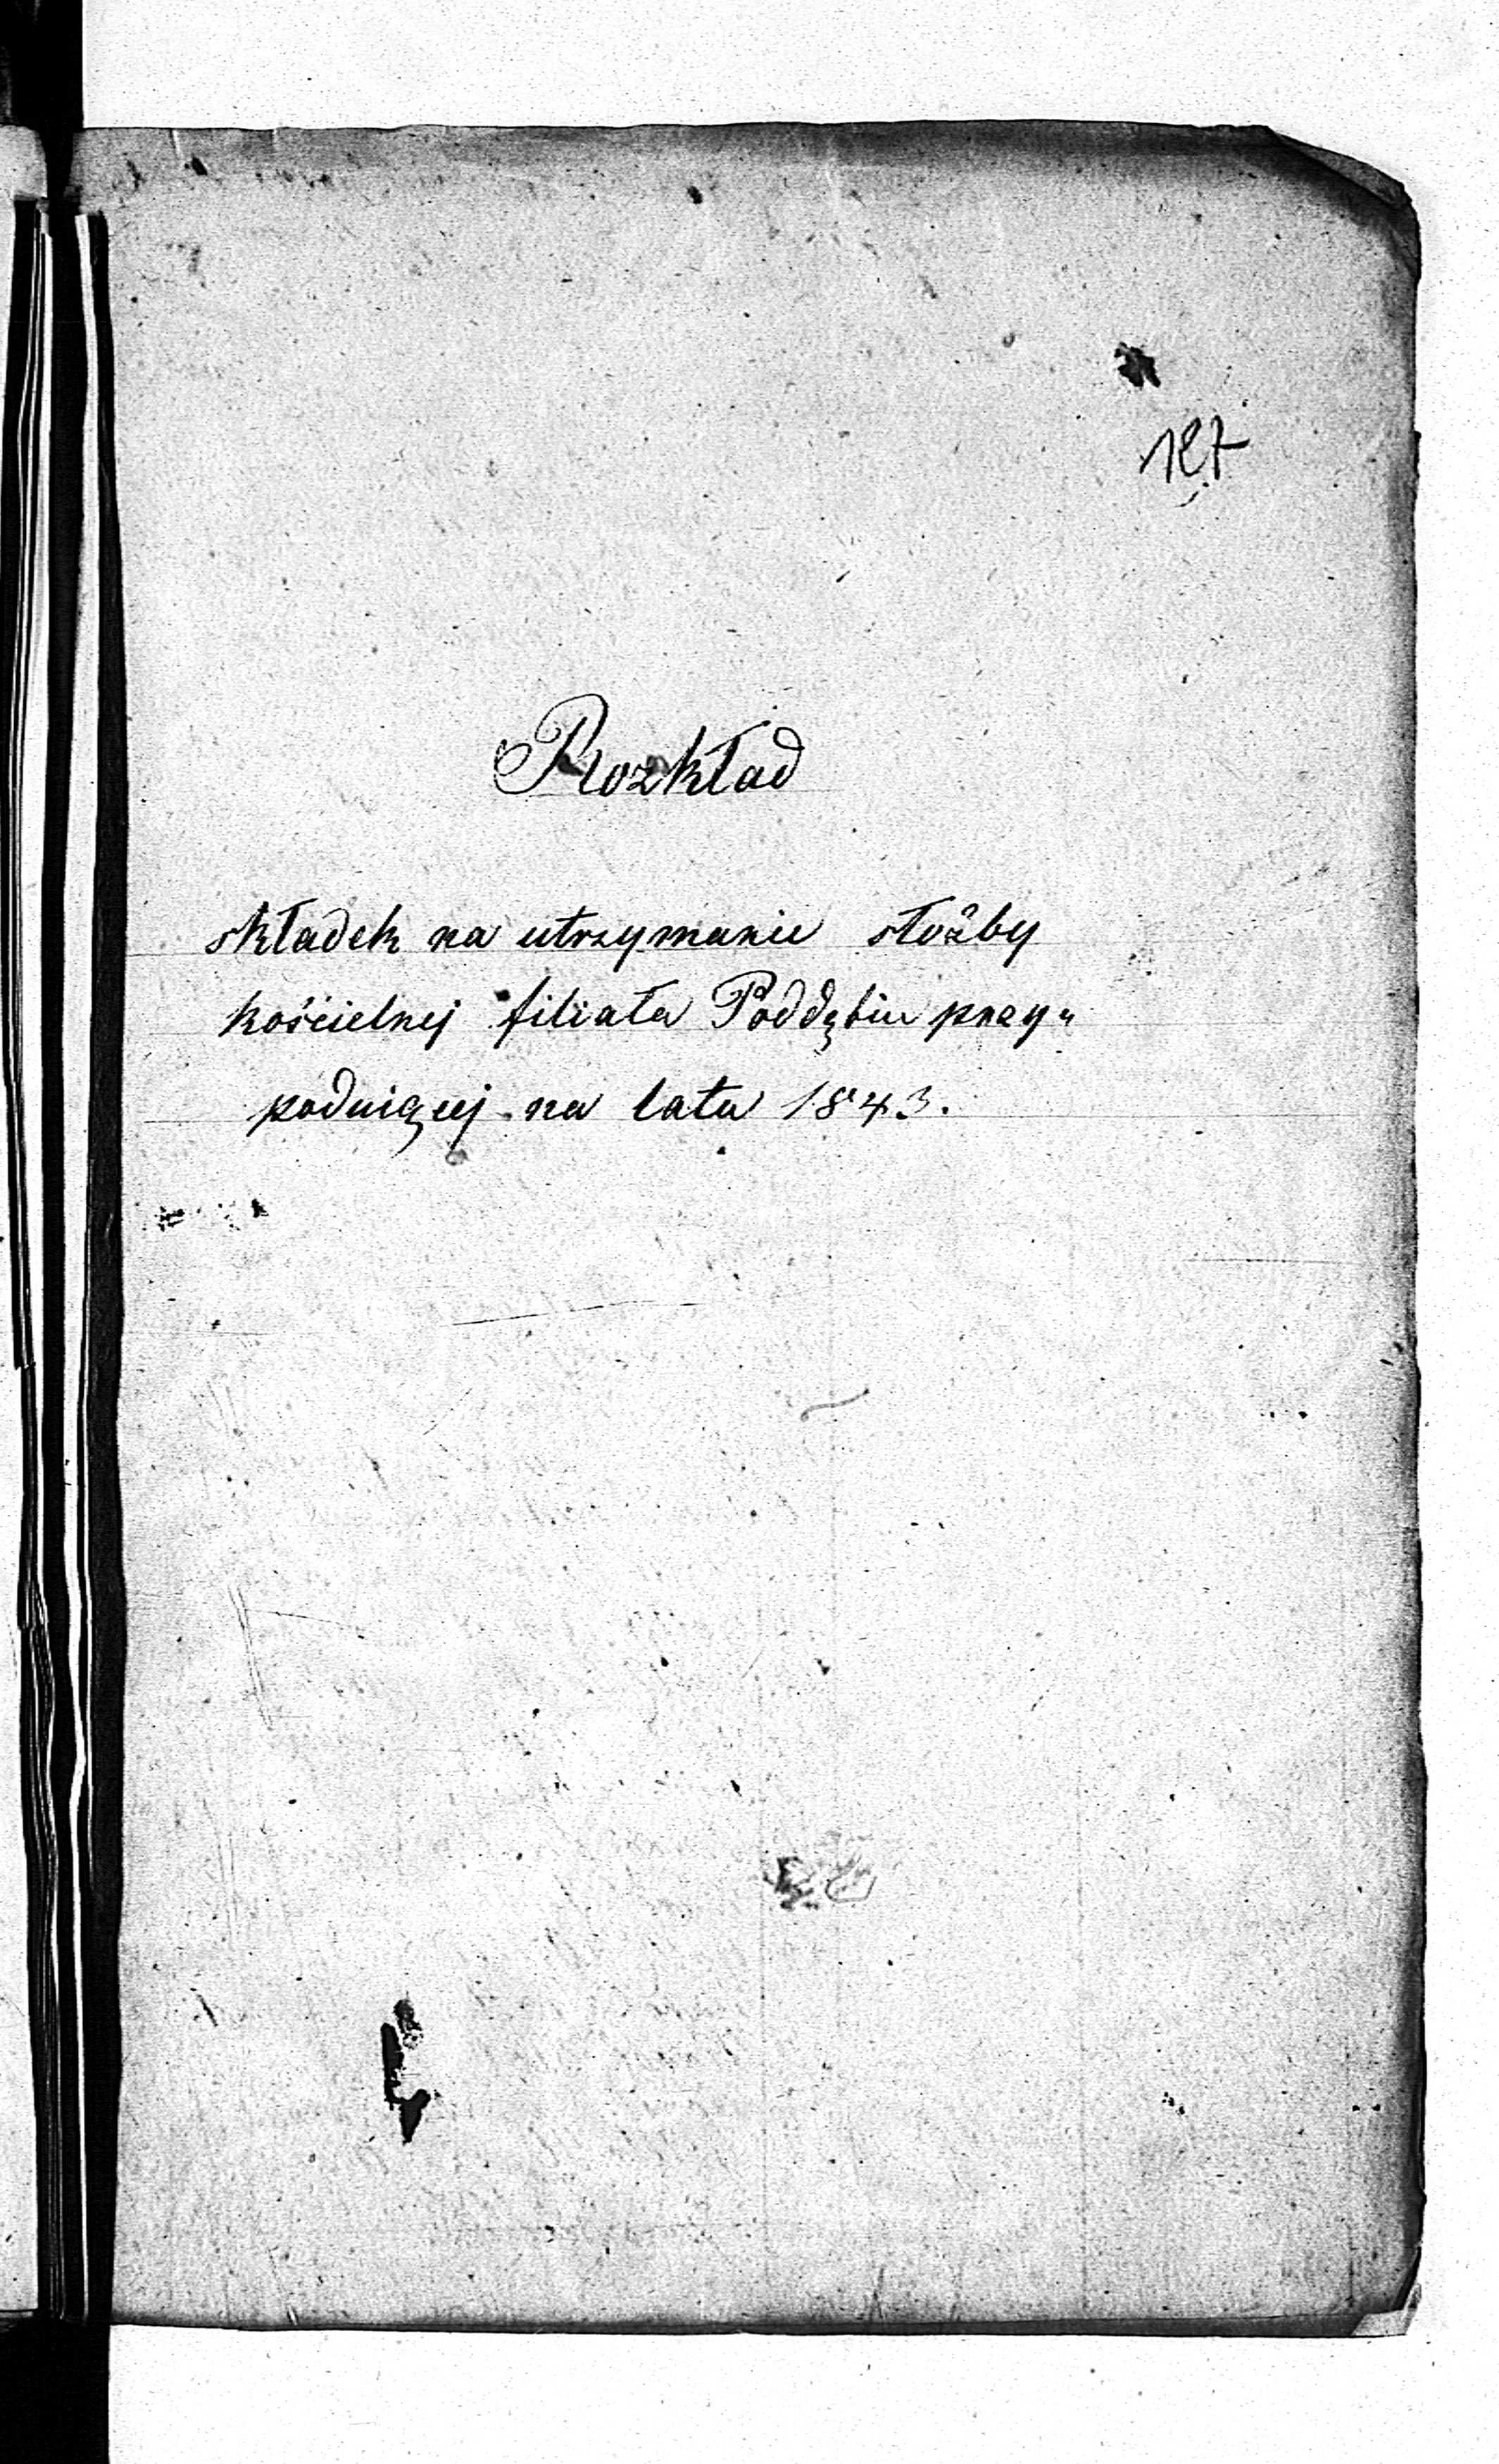 127
Rozkład
składek na utrzymanie słożby
kościelnej filiała Poddębiu przy„
padaiącej na lata 1843.